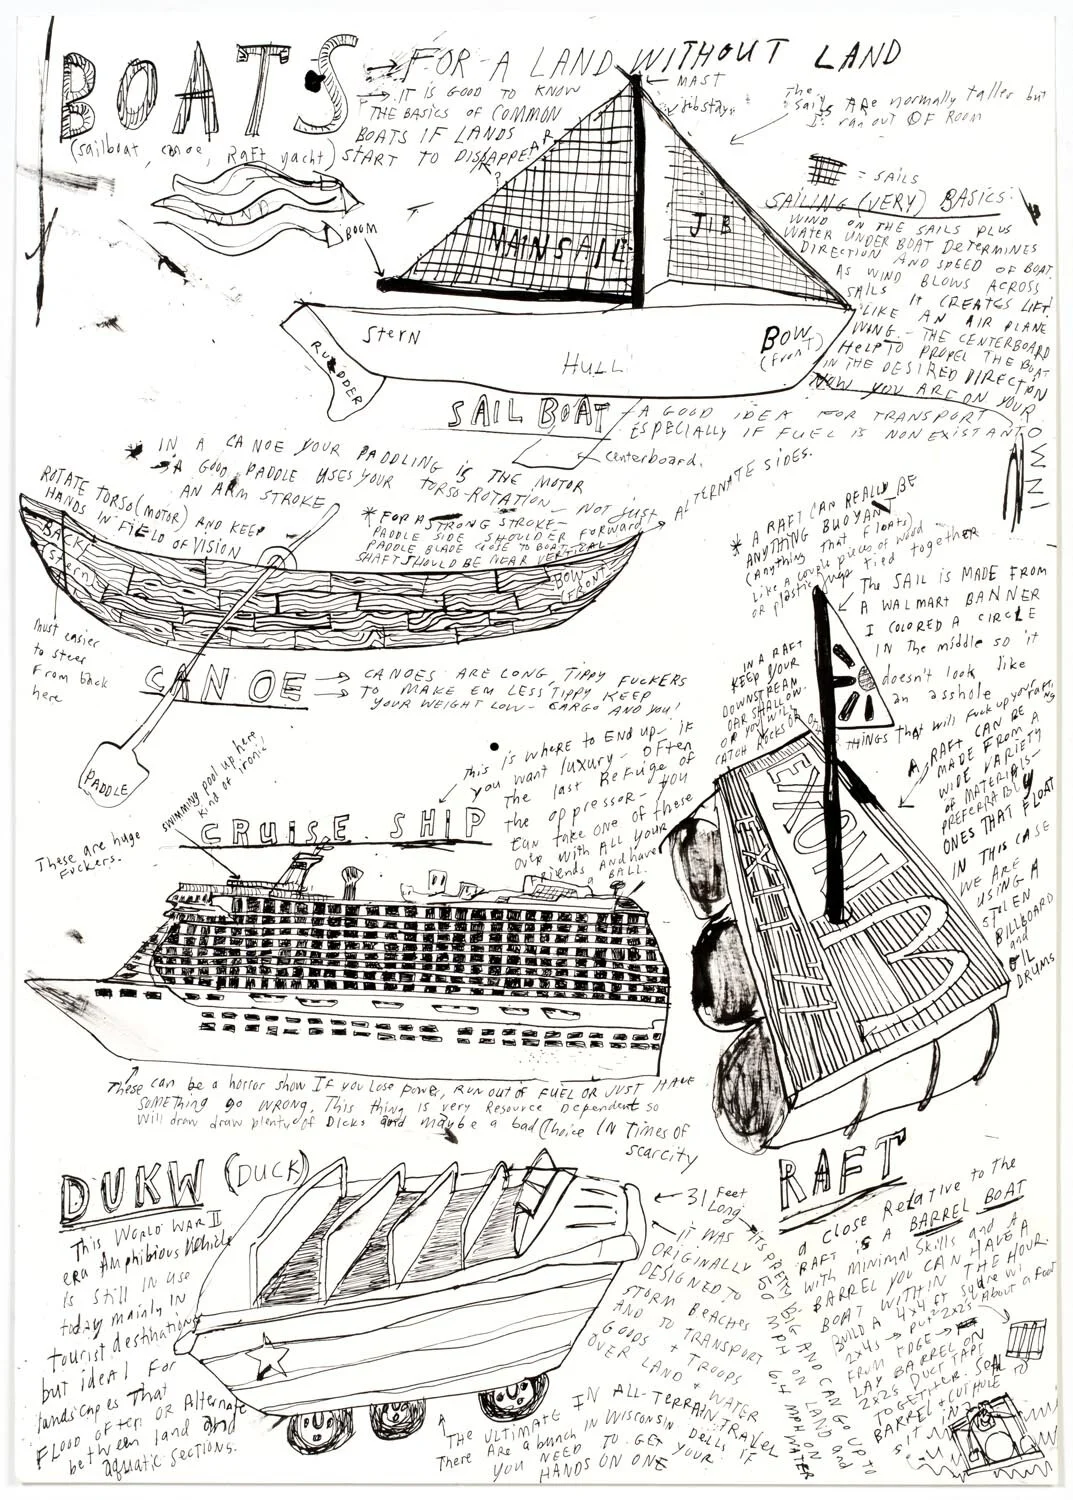 BOATS → FOR A LAND WITHOUT LAND
(sailboat, canoe, Raft yacht)
→ IT IS GOOD TO KNOW
THE BASICS OF COMMON
BOATS IF LANDS
START TO DISAPPEAR
?
WIND
BOOM
MAST
Jibstay
The sails ARE normally taller but
I ran out OF ROOM
MAINSAIL
JIB
= SAILS
SAILING (VERY) BASICS:
WIND ON THE SAILS PLUS
WATER UNDER BOAT DETERMINES
DIRECTION AND SPEED OF BOAT.
AS WIND BLOWS ACROSS
SAILS IT CREATES LIFT
LIKE AN AIR PLANE
WING - THE CENTERBOARD
HELP TO PROPEL THE BOAT
IN THE DESIRED DIRECTION
NOW YOU ARE ON YOUR
Stern
RUDDER
HULL
BOW
(front)
SAIL BOAT
- A GOOD IDEA FOR TRANSPORT
ESPECIALLY IF FUEL IS NONEXISTANT
centerboard.
* IN A CANOE YOUR PADDLING IS THE MOTOR
→ A GOOD PADDLE USES YOUR TORSO-ROTATION - NOT just
AN ARM STROKE
ROTATE TORSO (MOTOR) AND KEEP
HANDS IN FIELD OF VISION
* FOR A STRONG STROKE -
PADDLE SIDE SHOULDER FORWARD
PADDLE BLADE CLOSE TO BOAT
SHAFT SHOULD BE NEAR VERTICAL
ALTERNATE SIDES.
BACK
(stern)
BOW
FRONT
must easier
to steer
from back
here
CANOE
→ CANOES ARE LONG, TIPPY FUCKERS
→ TO MAKE EM LESS TIPPY KEEP
YOUR WEIGHT LOW - CARGO AND YOU!
PADDLE
* A RAFT CAN REALLY BE
ANYTHING BUOYANT
(Anything that floats)
Like a couple pieces of wood
or plastic jugs tied together
The SAIL IS MADE FROM
A WALMART BANNER
I COLORED A CIRCLE
IN THE middle so it
doesn't look like
an asshole
IN A RAFT
KEEP YOUR
DOWNSTREAM
OAR SHALLOW.
OR YOU WILL
CATCH ROCKS OR OTHER
THINGS that will fuck up your rafting
A RAFT CAN BE
MADE FROM A
WIDE VARIETY
OF MATERIALS -
PREFERRABLY
ONES THAT FLOAT
IN THIS CASE
WE ARE
USING A
STOLEN
BILLBOARD
and
OIL
DRUMS
EXXON
EXIT 41
RAFT
swimming pool up here,
kind of ironic
These are huge
fuckers.
CRUISE SHIP
This is where to END up - if
you want luxury - OFten
The last Refuge of
the oppressor - you
can take one of these
over with ALL your
friends and have
a BALL.
These can be a horror show IF you Lose Power, RUN OUT OF FUEL OR JUST HAVE
SOMETHING GO WRONG, This thing is very Resource Dependent so
Will draw draw plenty of DICKS and maybe a bad Choice IN Times of
scarcity
DUKW (DUCK)
This World War II
era Amphibious Vehicle
is still in use
today mainly in
tourist destinations
but ideal For
landscapes that
FLOOD OFten OR Alternate
between land and
aquatic SECTIONS.
← 31 Feet
Long
IT WAS
ORIGINALLY
DESIGNED TO
STORM BEACHES
AND TO TRANSPORT
GOODS + TROOPS
OVER LAND + WATER
ITS PRETTY BIG AND CAN GO UP TO
50 MPH ON LAND and
6.4 MPH ON WATER
THE ULTIMATE IN ALL-TERRAIN TRAVEL
There ARE a bunch IN WISCONSIN DELLS IF
YOU NEED TO GET YOUR
HANDS ON ONE
a close Relative to the
RAFT is A BARREL BOAT
with minimal skills and A
BARREL YOU CAN HAVE A
BOAT WITHIN THE HOUR.
BUILD A 4x4 ft square w/
2x4s → put 2 2x2s About a foot
FROM EDGE →
LAY BARREL ON
2x2s DUCT TAPE
TOGETHER. SEAL
BARREL + CUT HOLE TO
SIT IN